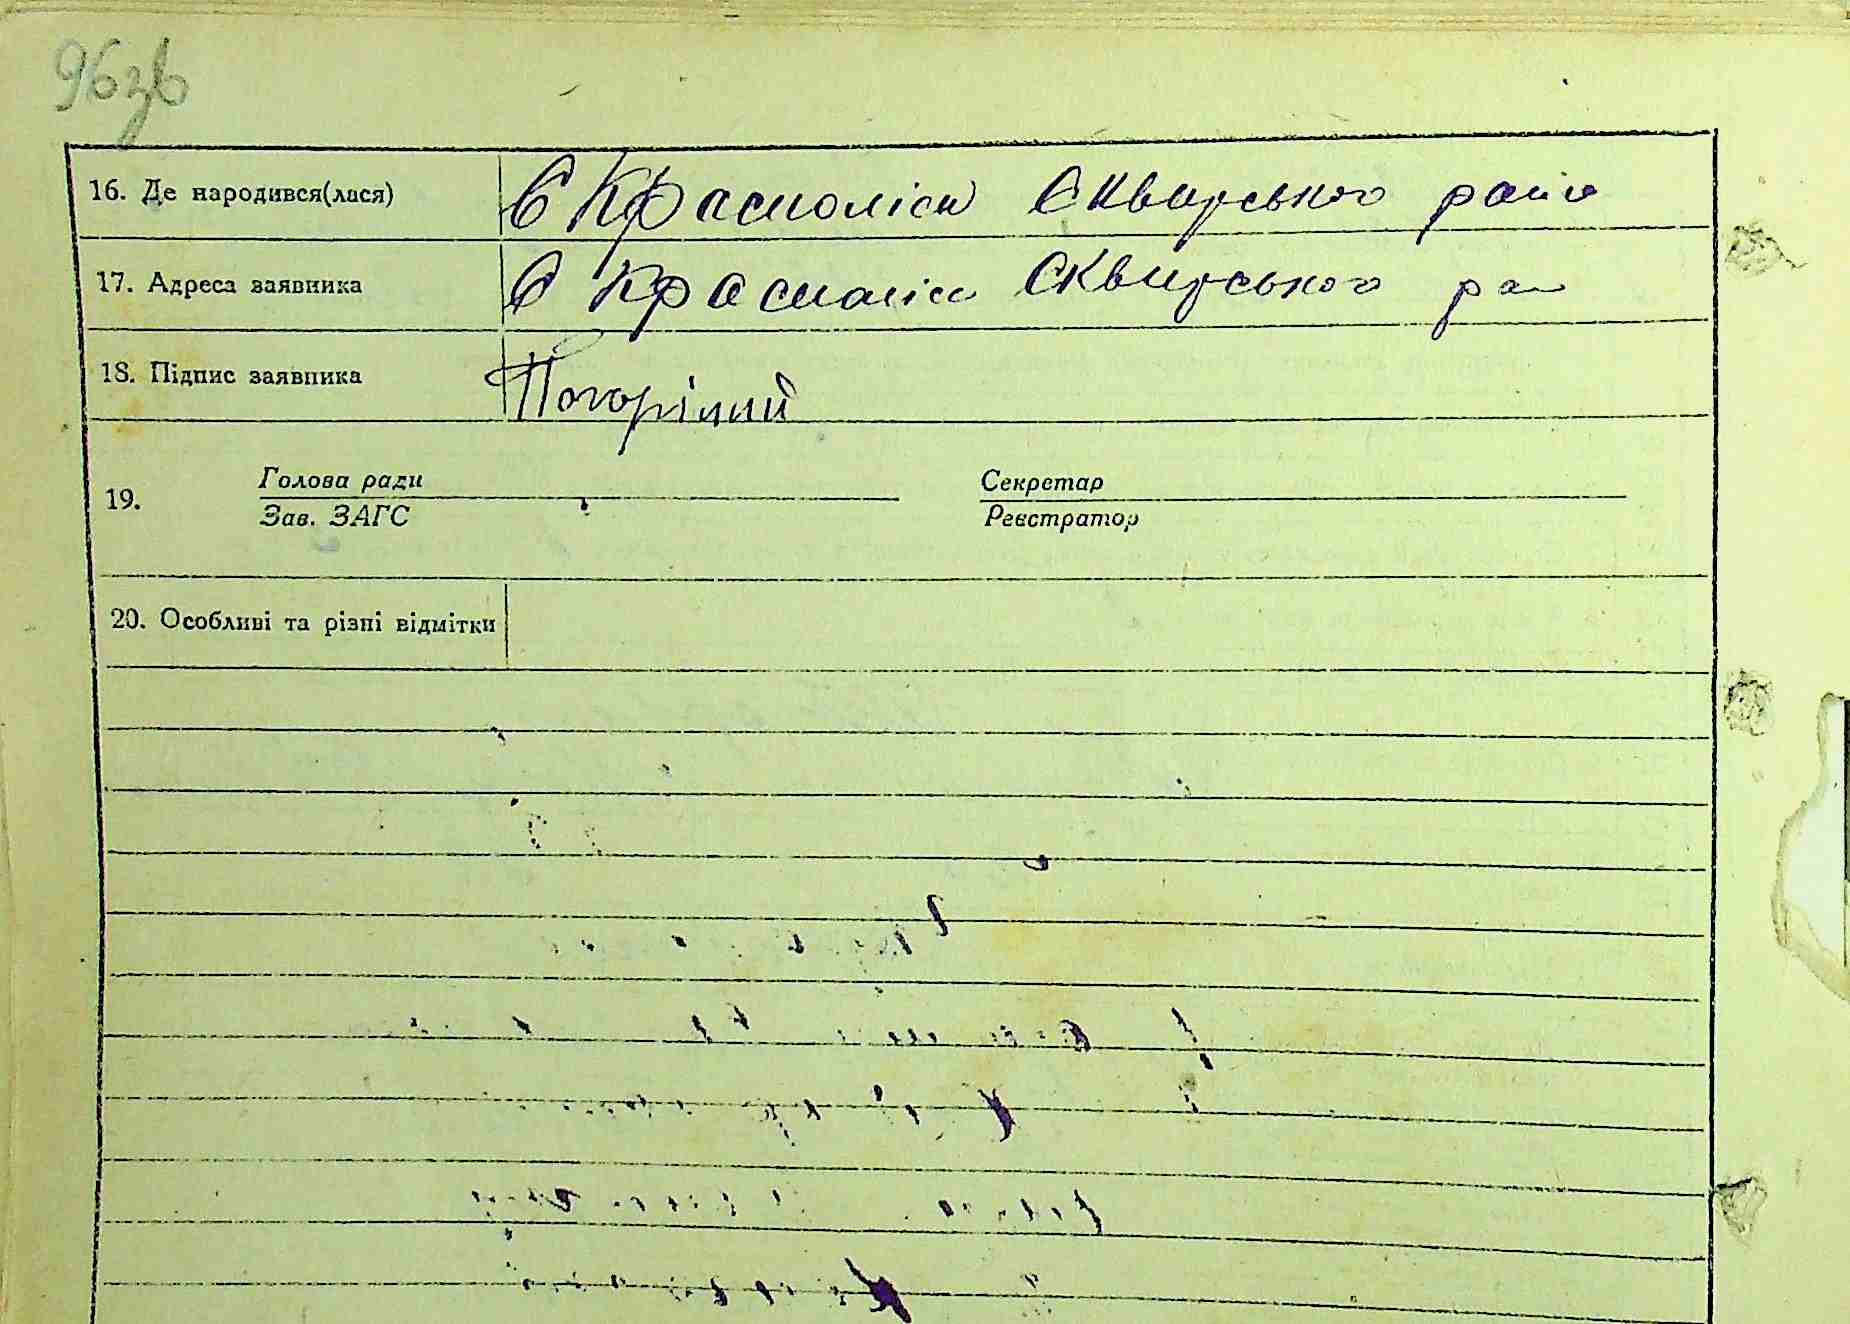 96зв
16. Де народився(лася) С Красноліси Сквирського райо
17. Адреса заявника С Красноліси Сквирського ра
18. Підпис заявника Погорілий
19. Голова ради Секретар
Зав. ЗАГС Реєстратор
20. Особливі та різні відмітки